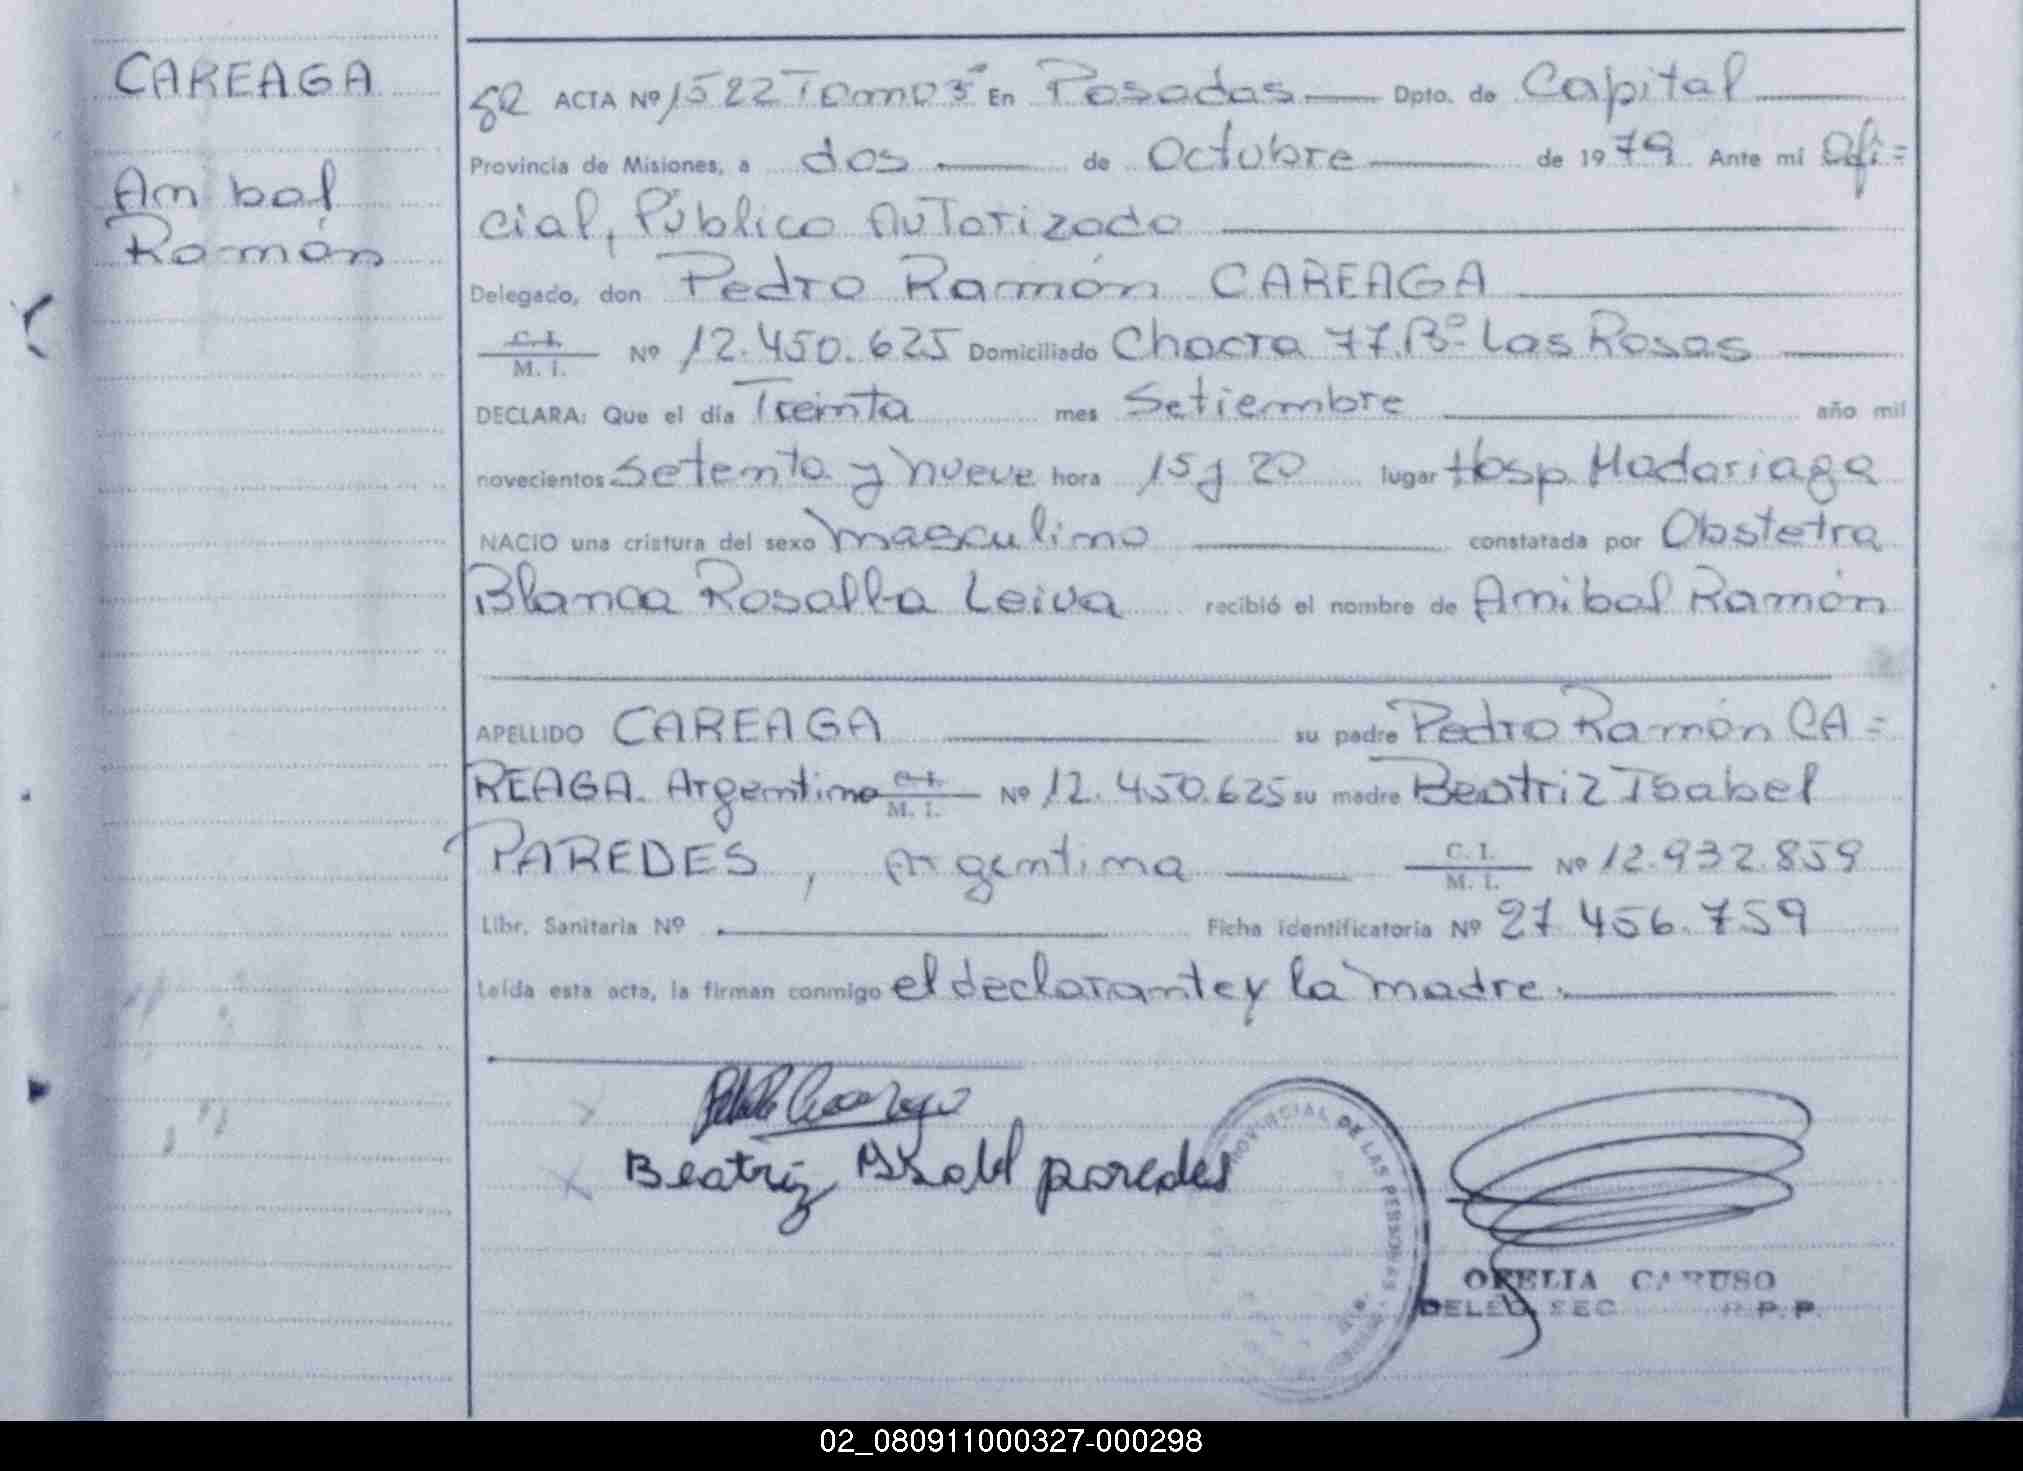 CAREAGA
Anibal
Ramón
ACTA Nº 1522 Tomo 3º En Posadas Dpto. de Capital
Provincia de Misiones, a dos de Octubre de 1979 Ante mí Ofi=
cial, Público Autorizado
Delegado, don Pedro Ramón CAREAGA
C. I.
M. I. Nº 12.450.625 Domiciliado Chacra 77. Bº Las Rosas
DECLARA: Que el día Treinta mes Setiembre año mil
novecientos setenta y nueve hora 15 y 20 lugar Hosp. Madariaga
NACIO una criatura del sexo masculino constatada por Obstetra
Blanca Rosalba Leiva recibió el nombre de Anibal Ramón
APELLIDO CAREAGA su padre Pedro Ramón CA=
REAGA. Argentino C. I. M. I. Nº 12.450.625 su madre Beatriz Isabel
PAREDES, Argentina C. I. M. I. Nº 12.932.859
Libr. Sanitaria Nº Ficha identificatoria Nº 27.456.759
Leída esta acta, la firman conmigo el declarante y la madre.
Beatriz Isabel paredes
PROVINCIAL DE LAS PERSONAS
OFELIA CARUSO
DELEG. SEC R.P.P.
02_080911000327-000298